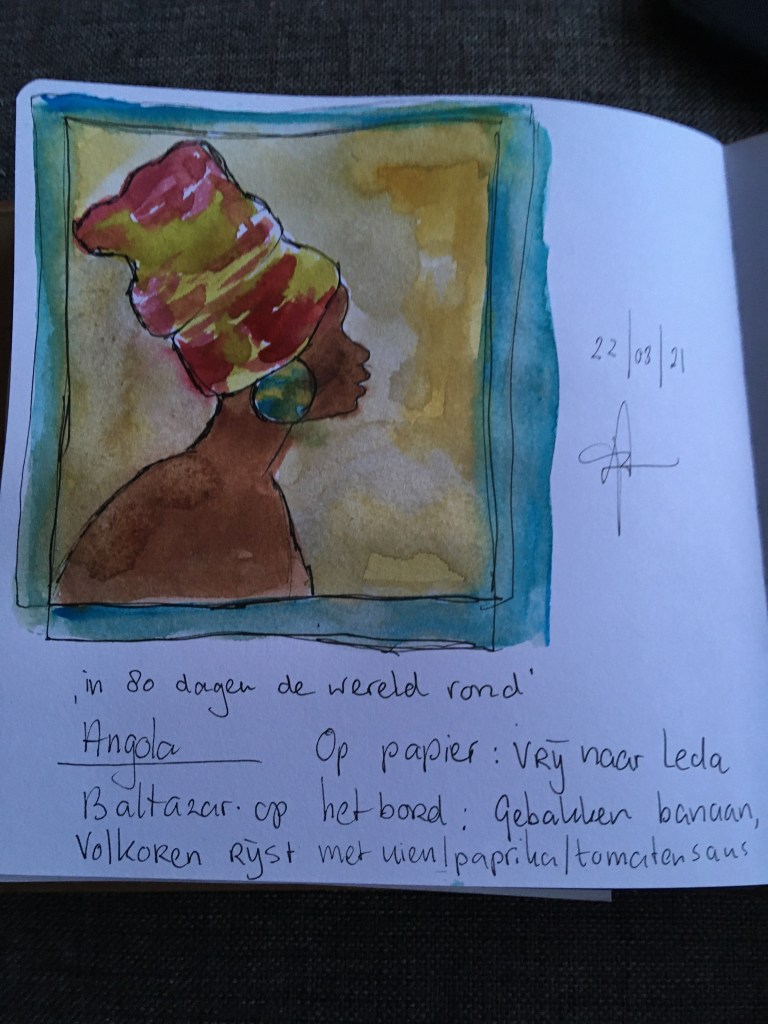 22/03/21
'in 80 dagen de wereld rond'
Angola Op papier: Vrij naar Leda
Baltazar. op het bord: Gebakken banaan,
Volkoren Rijst met uien/paprika/tomatensaus